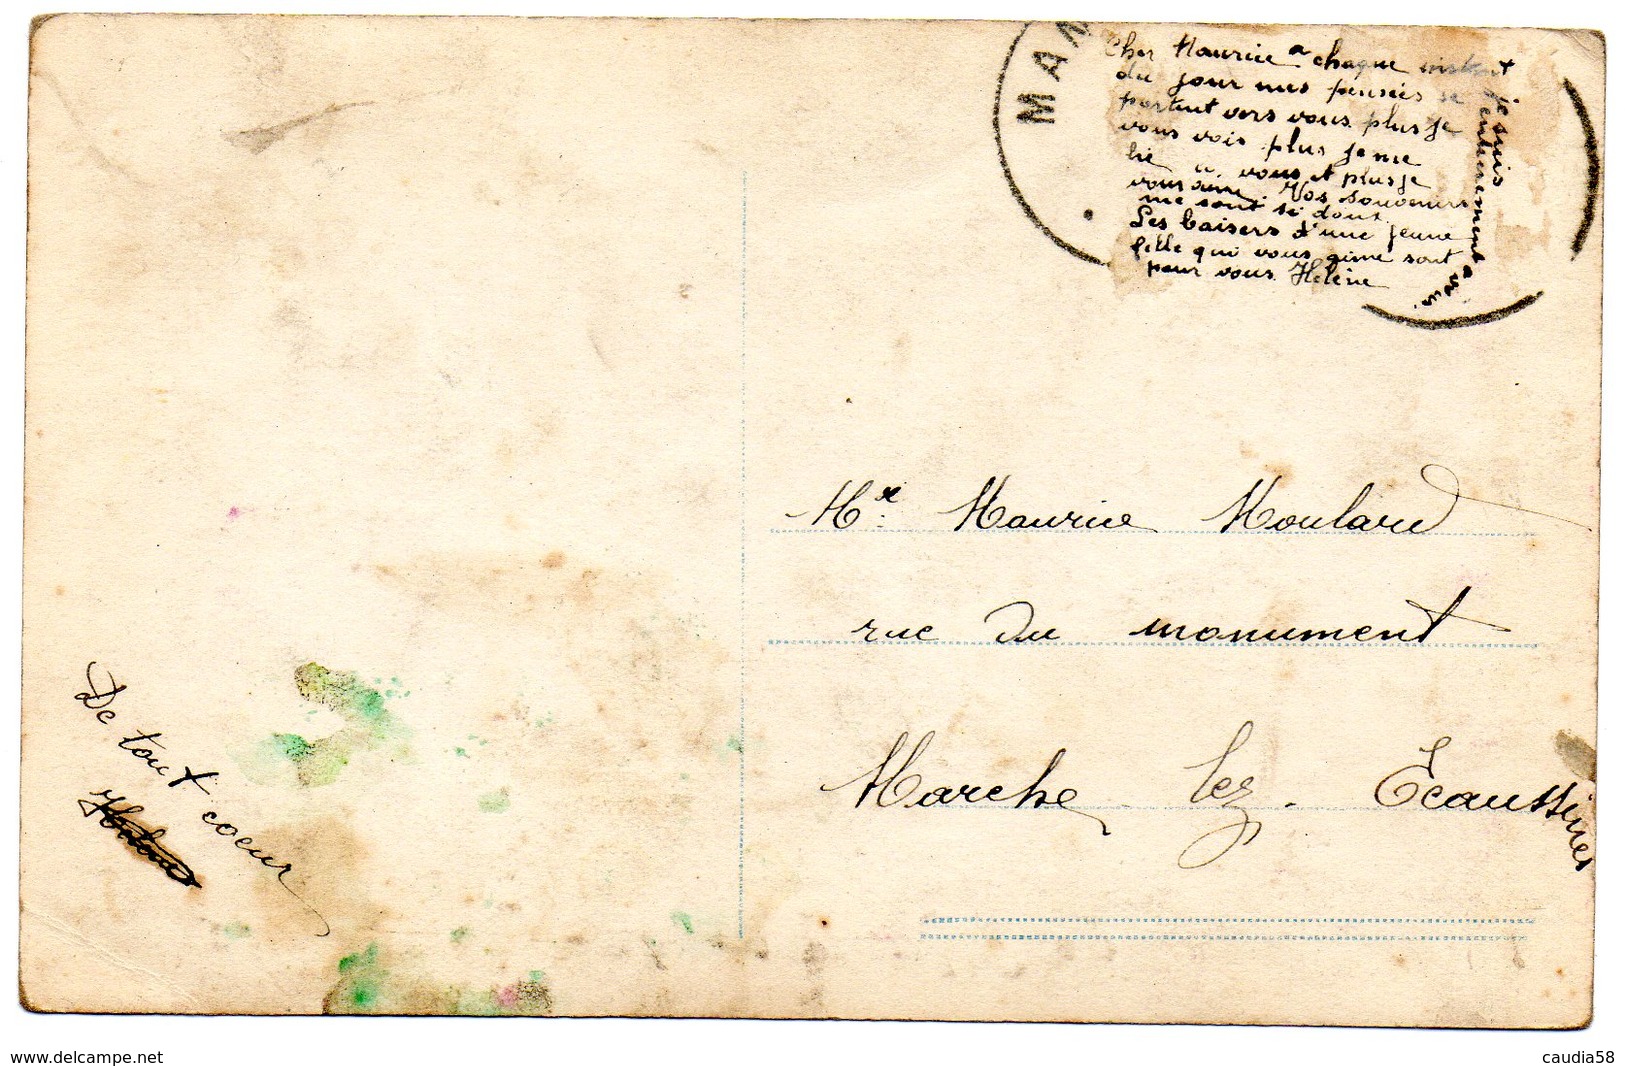 MAN
Cher Maurice a chaque instant
du jour mes pensées se
portent vers vous plus je
vous vois plus je me
lie à vous et plus je
vous aime. Vos souvenirs
me sont si doux.
Les baisers d'une jeune
fille qui vous aime sont
pour vous Hélène
je suis
entièrement a vous.
Mr. Maurice Moulard
rue du monument
Marche - lez - Ecaussines
De tout coeur
Hélène
www.delcampe.net
caudia58